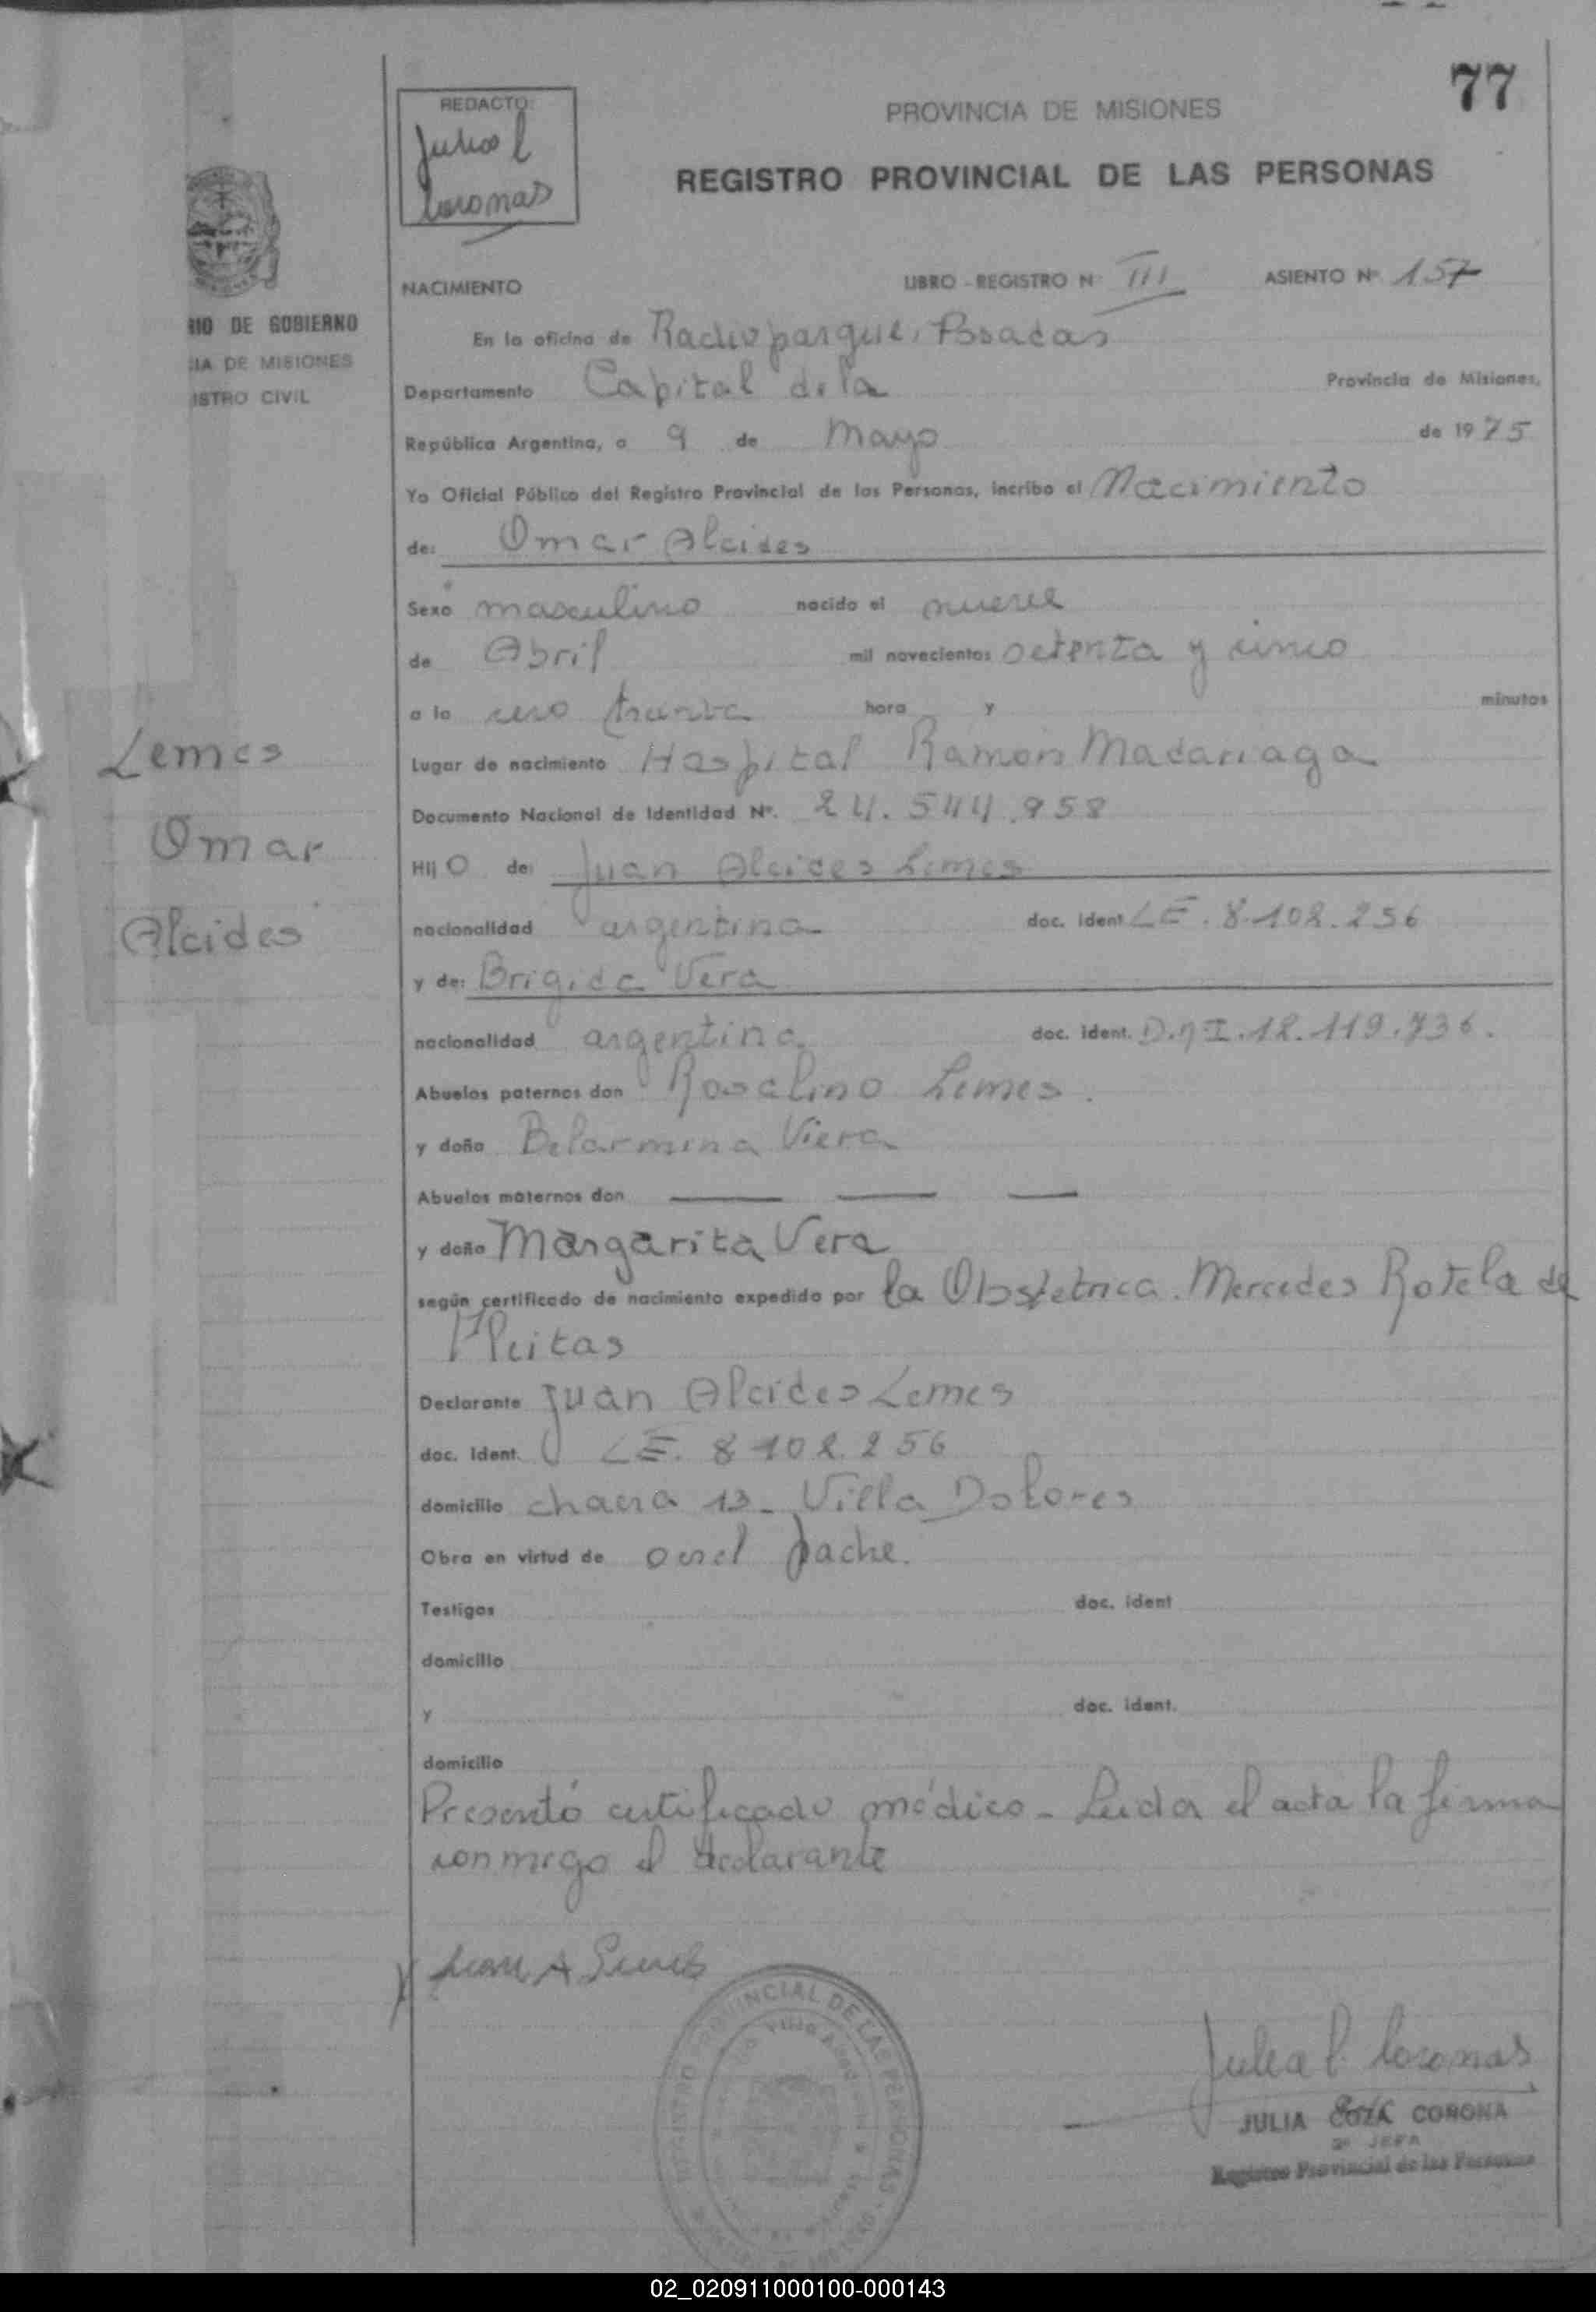 77
REDACTO:
Julia C
Coronas
PROVINCIA DE MISIONES
REGISTRO PROVINCIAL DE LAS PERSONAS
RIO DE GOBIERNO
CIA DE MISIONES
ISTRO CIVIL
NACIMIENTO LIBRO - REGISTRO Nº III ASIENTO Nº 157
En la oficina de Radioparque, Posadas
Departamento Capital de la Provincia de Misiones,
República Argentina, a 9 de Mayo de 1975
Yo Oficial Público del Registro Provincial de las Personas, incribo el Nacimiento
de: Omar Alcides
Sexo masculino nacido el nueve
de Abril mil novecientos setenta y cinco
a la cero treinta hora y minutos
Lugar de nacimiento Hospital Ramon Madariaga
Documento Nacional de Identidad Nº. 24.544.958
Hij O de: Juan Alcides Lemes
nacionalidad argentina doc. ident LE. 8.102.256
y de: Brigida Vera
nacionalidad argentina doc. ident. D.N.I. 12.119.736.
Abuelos paternos don Rosalino Lemes.
y doña Belarmina Viera
Abuelos maternos don — — —
y doña Margarita Vera
según certificado de nacimiento expedido por la Obstetrica. Mercedes Rotela de
Fleitas
Declarante Juan Alcides Lemes
doc. ident. LE. 8 102.256
domicilio chacra 13 - Villa Dolores
Obra en virtud de ser el padre.
Testigos doc. ident
domicilio
y doc. ident.
domicilio
Presentó certificado médico - Leida el acta la firma
conmigo el declarante
Lemes
Omar
Alcides
Juan A Lemes
REGISTRO PROVINCIAL DE LAS PERSONAS
Julia C. Coronas
JULIA CORONA
JEFA
Registro Provincial de las Personas
02_020911000100-000143